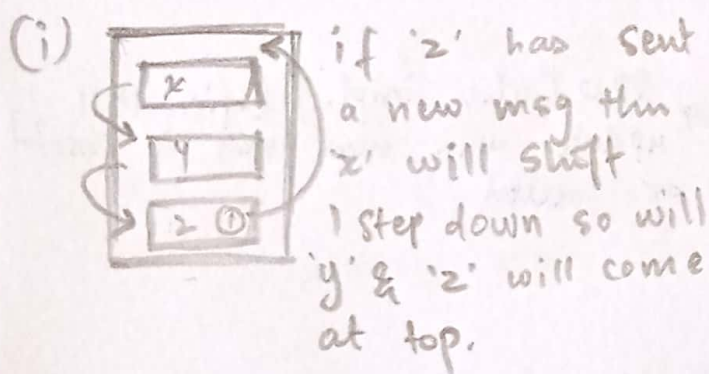 (i)
if 'z' has sent
a new msg then
'x' will shift
1 step down so will
'y' & 'z' will come
at top.
x
y
z 1